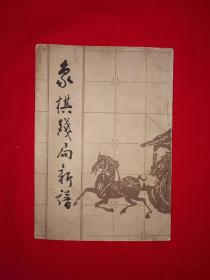 象棋残局新谱